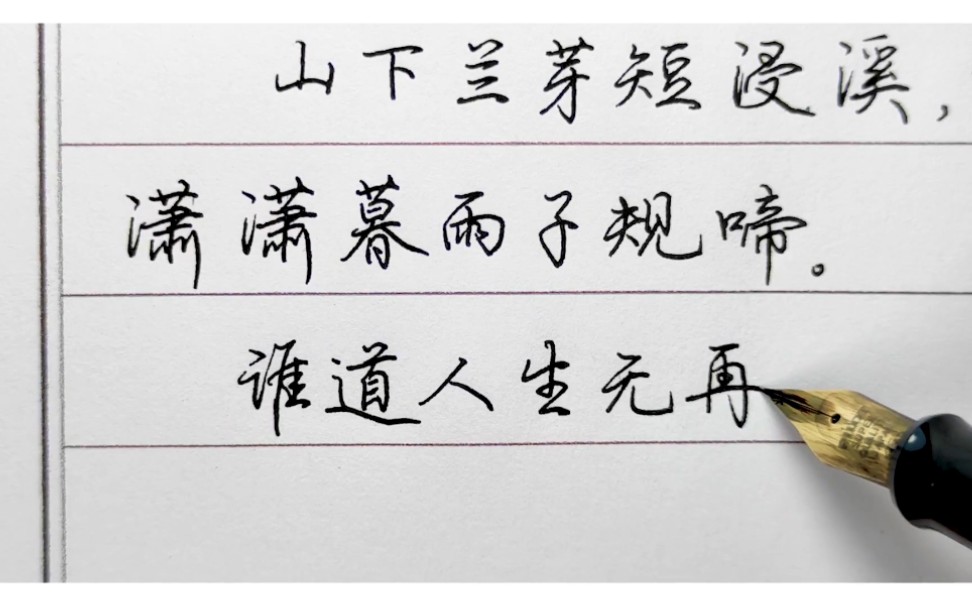 山下兰芽短浸溪,
潇潇暮雨子规啼。
谁道人生无再